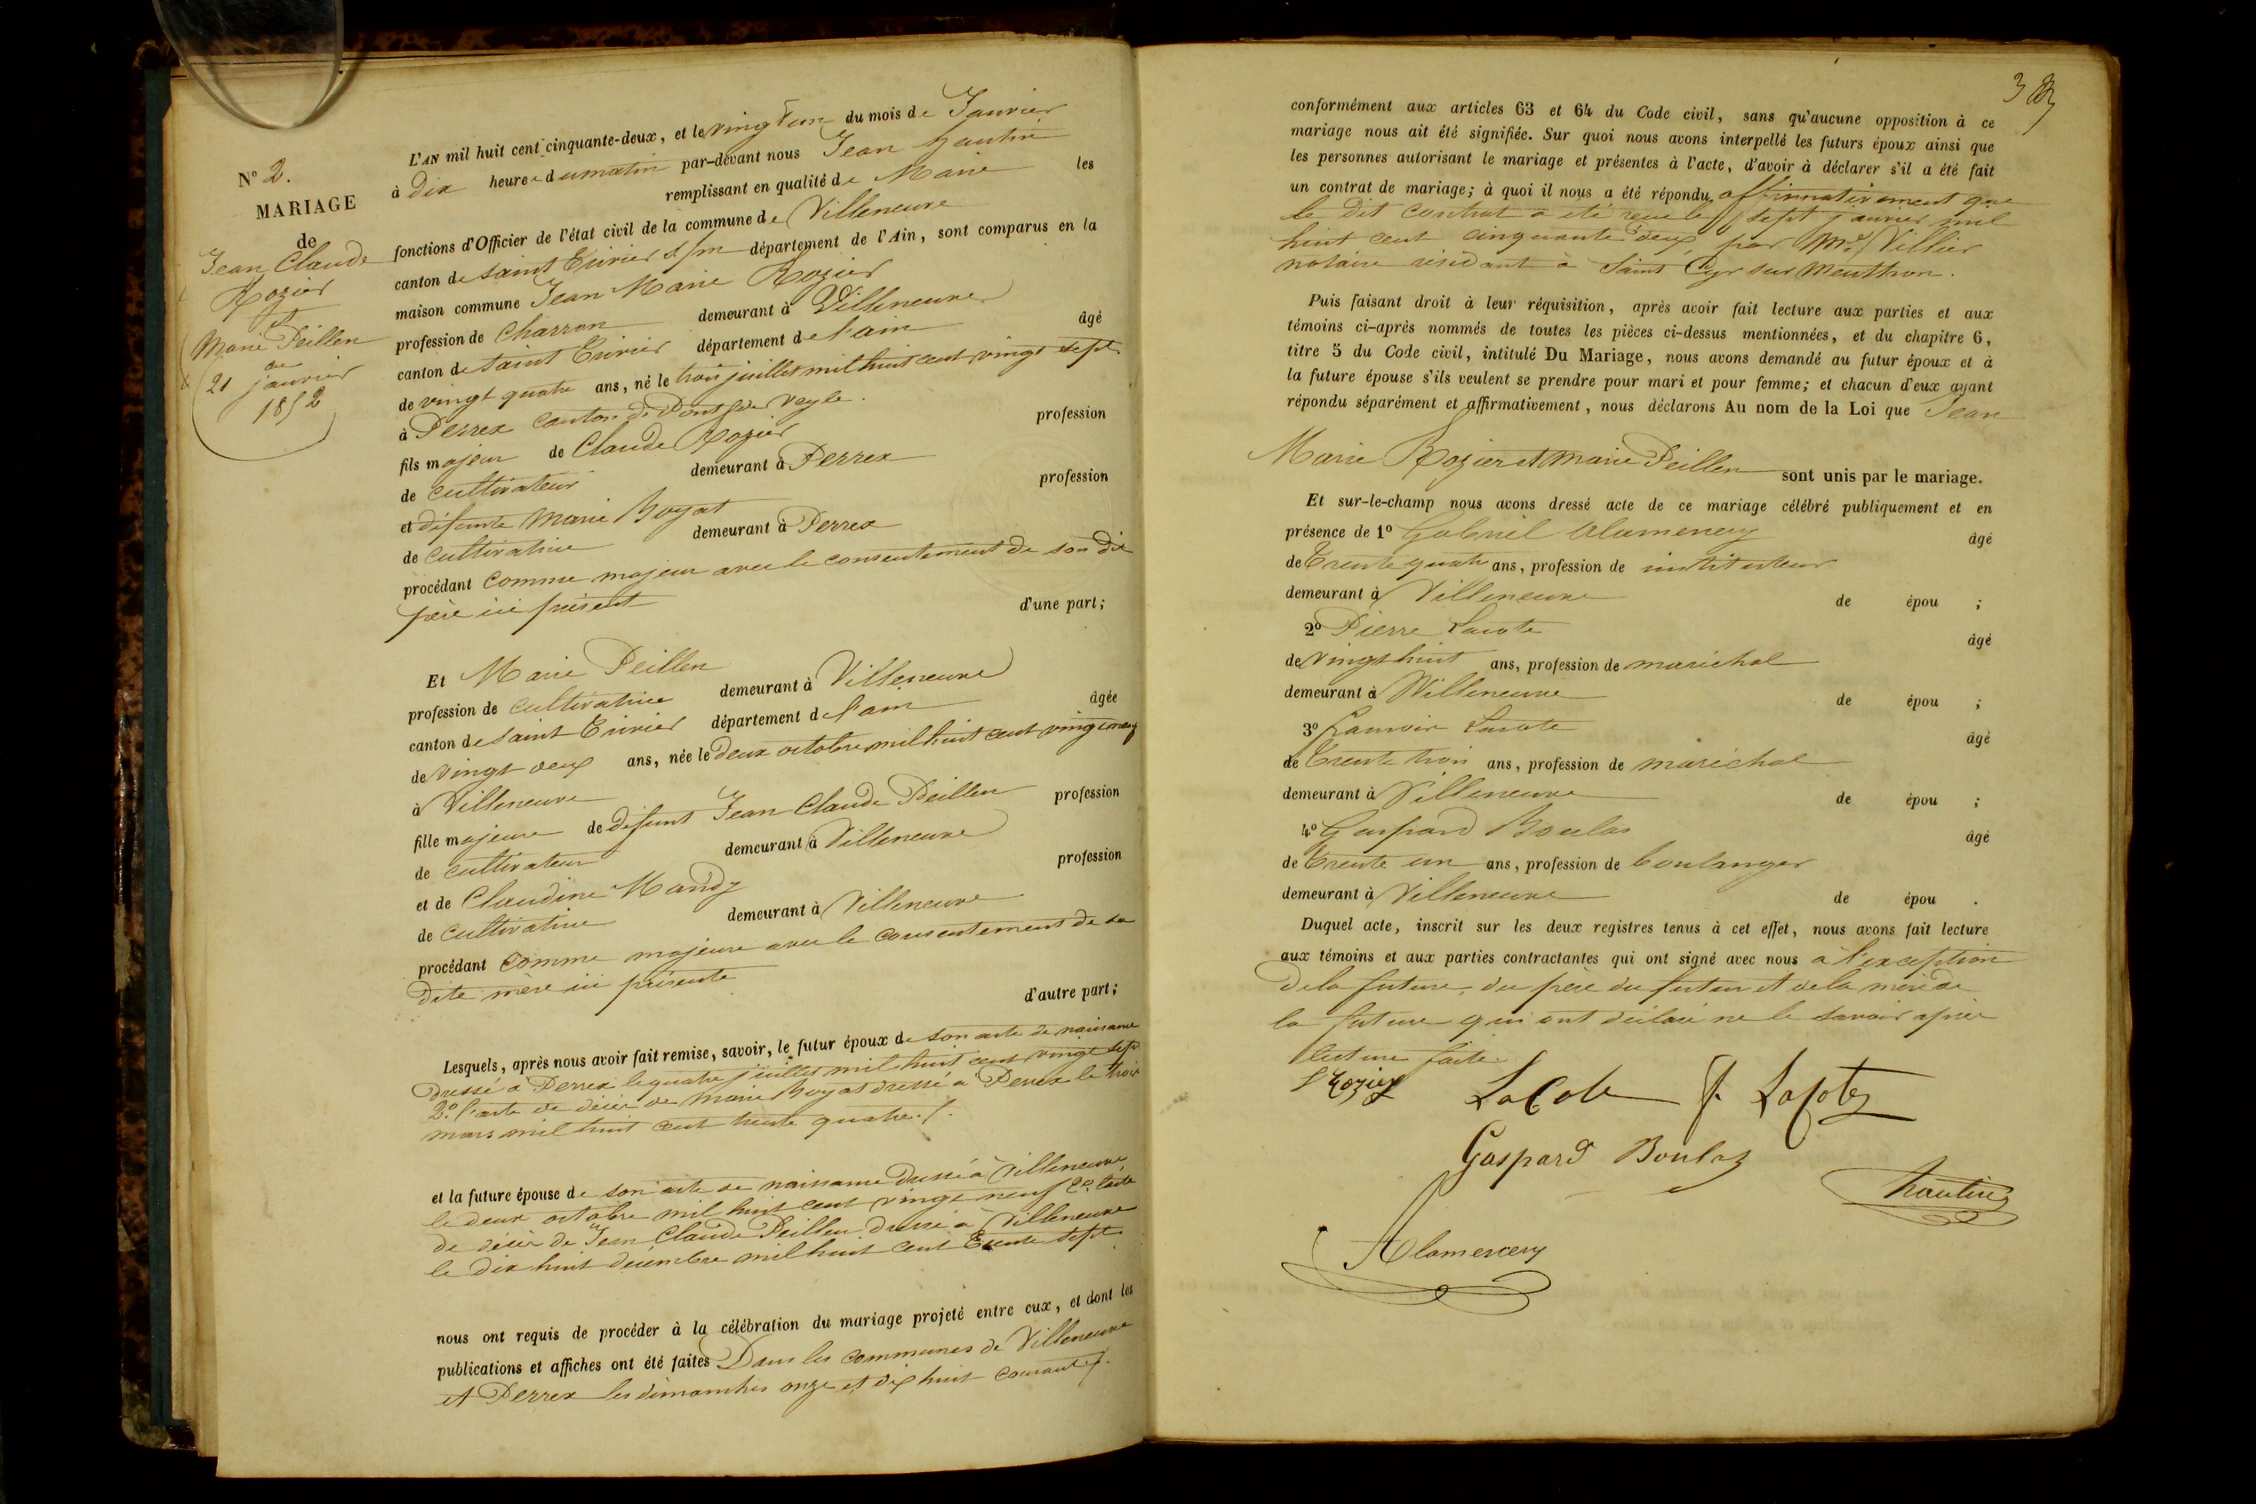 N° 2.
MARIAGE
de
Jean Claude
Rozier
et
Marie Peillen
21 janvier
1852
L'AN mil huit cent cinquante-deux, et le vingt un du mois de Janvier
à dix heures du matin par-devant nous Jean
remplissant en qualité de Maire les
fonctions d'Officier de l'état civil de la commune de Villeneuve
canton de Saint Trivier s/m département de l'Ain, sont comparus en la
maison commune Jean Marie Rozier
profession de charron demeurant à Villeneuve
canton de Saint Trivier département de l'ain âgé
de vingt quatre ans, né le trois juillet mil huit cent vingt sept
à Perrex canton de Pont de Veyle.
fils majeur de Claude Rozier profession
de cultivateur demeurant à Perrex
et défunte Marie Boyat profession
de cultivatrice demeurant à Perrex
procédant comme majeur avec le consentement de son dit
père ici présent d'une part;
Et Marie Peillen
profession de cultivatrice demeurant à Villeneuve
canton de Saint Trivier département de l'ain âgée
de vingt deux ans, née le deux octobre mil huit cent vingt neuf
à Villeneuve
fille majeure de défunt Jean Claude Peillen profession
de cultivateur demeurant à Villeneuve
et de Claudine Mandy profession
de cultivatrice demeurant à Villeneuve
procédant comme majeure avec le consentement de sa
dite mère ici présente d'autre part;
Lesquels, après nous avoir fait remise, savoir, le futur époux de son acte de naissance
dressé à Perrex le quatre juillet mil huit cent vingt sept
2° l'acte de décès de Marie Boyat dressé à Perrex le trois
mars mil huit cent trente quatre ./.
et la future épouse de son acte de naissance dressé à Villeneuve
le deux octobre mil huit cent vingt neuf 2° l'acte
de décès de Jean Claude Peillen dressé à Villeneuve
le dix huit décembre mil huit cent trente sept
nous ont requis de procéder à la célébration du mariage projeté entre eux, et dont les
publications et affiches ont été faites Dans les communes de Villeneuve
et Perrex les dimanches onze et dix huit courant ./.
conformément aux articles 63 et 64 du Code civil, sans qu'aucune opposition à ce
mariage nous ait été signifiée. Sur quoi nous avons interpellé les futurs époux ainsi que
les personnes autorisant le mariage et présentes à l'acte, d'avoir à déclarer s'il a été fait
un contrat de mariage; à quoi il nous a été répondu affirmativement que
le dit contrat a été reçu le sept janvier mil
huit cent cinquante deux par Me Villier
notaire résidant à Saint Cyr sur Menthon.
Puis faisant droit à leur réquisition, après avoir fait lecture aux parties et aux
témoins ci-après nommés de toutes les pièces ci-dessus mentionnées, et du chapitre 6,
titre 5 du Code civil, intitulé Du Mariage, nous avons demandé au futur époux et à
la future épouse s'ils veulent se prendre pour mari et pour femme; et chacun d'eux ayant
répondu séparément et affirmativement, nous déclarons Au nom de la Loi que Jean
Marie Rozier et Marie Peillen sont unis par le mariage.
Et sur-le-champ nous avons dressé acte de ce mariage célébré publiquement et en
présence de 1° Gabriel Alamercery âgé
de Trente quatre ans, profession de instituteur
demeurant à Villeneuve de épou ;
2° Pierre Lacote âgé
de vingt huit ans, profession de maréchal
demeurant à Villeneuve de épou ;
3° Lacote âgé
de Trente trois ans, profession de maréchal
demeurant à Villeneuve de épou ;
4° Gaspard Boulas âgé
de Trente un ans, profession de boulanger
demeurant à Villeneuve de épou .
Duquel acte, inscrit sur les deux registres tenus à cet effet, nous avons fait lecture
aux témoins et aux parties contractantes qui ont signé avec nous à l'exception
de la future, du père du futur et de la mère de
la future qui ont déclaré ne le savoir après
lecture faite.
Rozier LaCote f. Lacote
Gaspard Boulaz
Alamercery